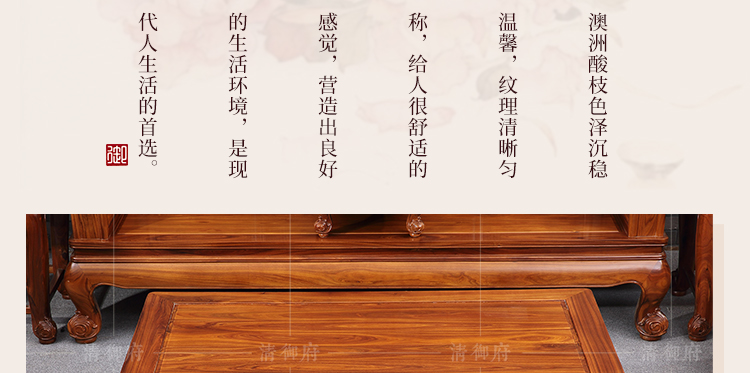 澳洲酸枝色泽沉稳
温馨，纹理清晰匀
称，给人很舒适的
感觉，营造出良好
的生活环境，是现
代人生活的首选。
御
清御府
清御府
清御府
清御府